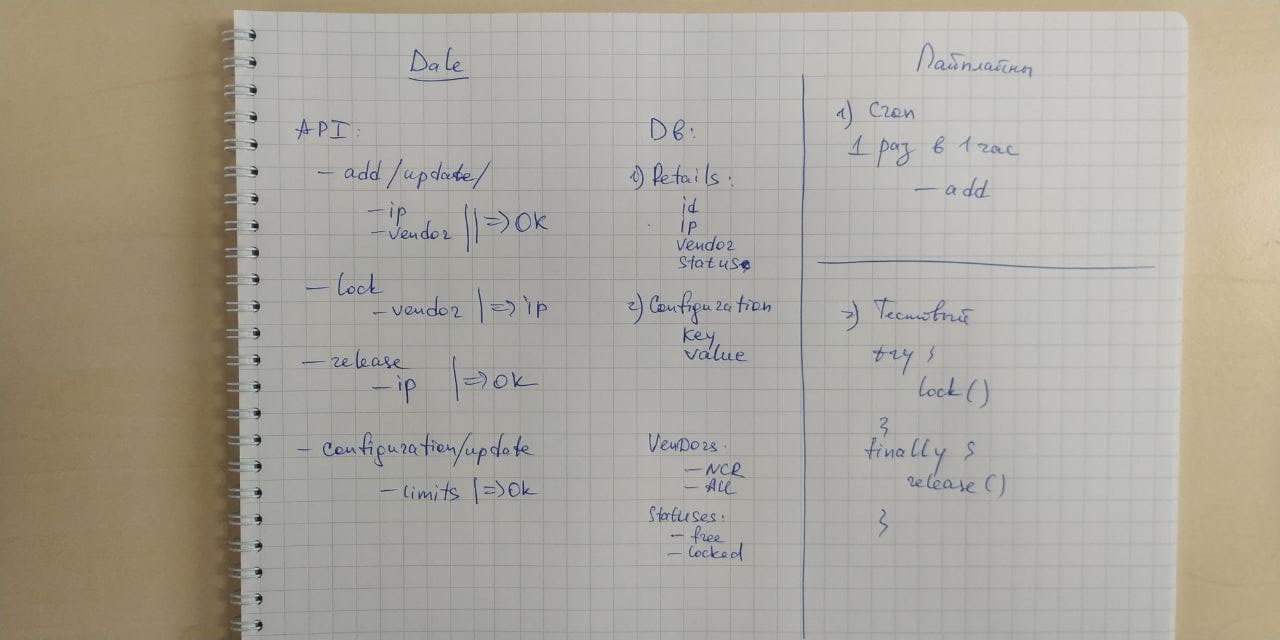 Dale
API:
- add/update/
- ip
- vendor || => OK
- lock
- vendor | => ip
- release
- ip | => OK
- configuration/update
- limits | => Ok
DB:
1) Details:
id
ip
vendor
status
2) Configuration
key
value
Vendors:
- NCR
- ALL
Statuses:
- free
- locked
Пайплайны
1) Cron
1 раз в 1 час
- add
2) Тестовый
try {
lock()
}
finally {
release()
}